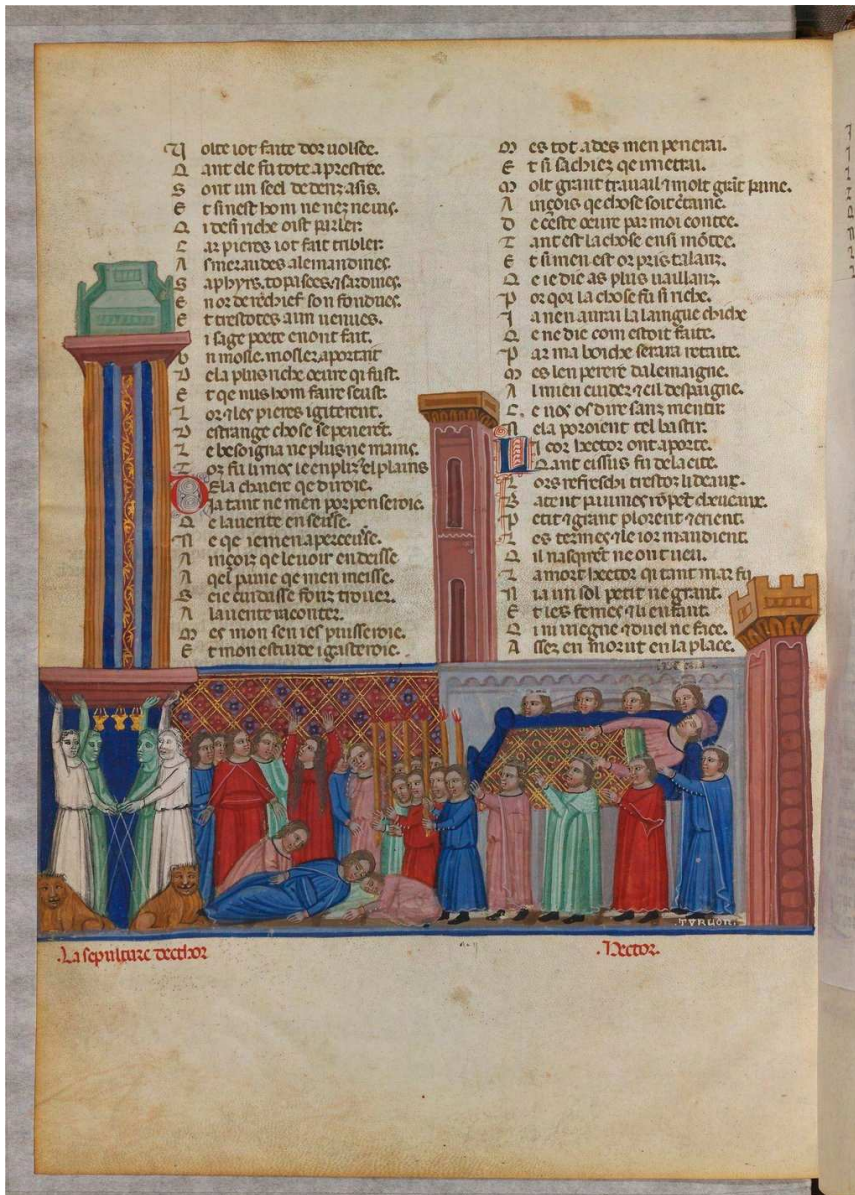 U olte iot faite dor uolsee.
Q ant ele fu tote aprestee.
S ont un seel dedenz asis.
E t sinest hom ne nez ne uis.
Q i desi riche oist parler.
C ar pieres iot fait tribler.
A smeraudes alemandines.
S aphyrs. topasces. ⁊ sardines.
E n or derechief son fondues.
E t trestotes aun uenues.
i sage poete enont fait.
U n mosle. mosler aportrait
D ela plus riche oeure qi fust.
E t qe nus hom faire seust.
L or ⁊ les pieres i giterent.
D estrange chose se peneret.
L e besoigna ne plus ne mains.
T or fu li moles le enpliz ⁊ el plains
D Ela chaiere qe diroie.
Ja tant ne men porpenseroie.
Q e lauerite en seusse.
N e qe iemen aperceusse.
A inçois qe leuoir endeisse
A qel paine qe men meisse.
S eie cuidasse fonz trouer.
A lauerite raconter.
M es mon sen i espuisseroie.
E t mon estude i gasteroie.
M es tot ades men penerai.
E t si sachiez qe imetrai.
M olt grant trauail ⁊ molt grant paine.
A inçois qe chose soit certaine.
D e ceste oeure par moi contee.
T ant est la chose ensi montee.
E t si men est or pris talanz.
Q e ie die as plus uaillanz.
P or qoi la chose fu si riche.
J a nen aurai la laingue chiche
Q e ne die com estoit faite.
P ar ma boiche sera retraite.
M es len perere dalemaigne.
A l mien cuider ⁊ cil despaigne.
C e uos os dire sanz mentir.
N ela poroient tel bastir.
L i cor hector ont aporte.
Q ant eissus fu dela cite.
L ors refreschi trestor li deaux.
B atent paumes ropet cheueaux.
P etit ⁊ grant plorent ⁊ crient.
L es termes ⁊ le ior maudient.
Q il nasqirent ne ont ueu.
L a mort hector qi tant mar fu
N ia un sol petit ne grant.
E t les femes ⁊ li enfant.
Q i ni megne ⁊ duel ne face.
A ssez en morut en la place.
.TVRUON.
.La sepulture decthor
.Hector.